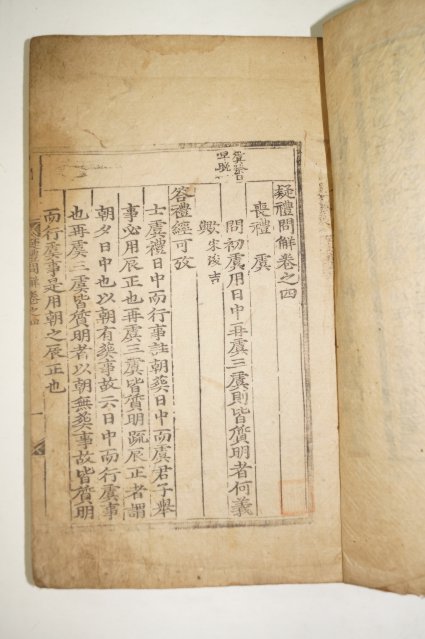 虞祭
早晚
疑禮問解卷之四
喪禮　虞
問初虞用日中再虞三虞則皆質明者何義
歟　宋浚吉
答禮經可攷
士虞禮日中而行事註朝葬日中而虞君子舉
事必用辰正也再虞三虞皆質明疏辰正者謂
朝夕日中也以朝有葬事故云日中而行虞事
也再虞三虞皆質明者以朝無葬事故皆質明
而行虞事是用朝之辰正也
疑禮問解卷之四
一